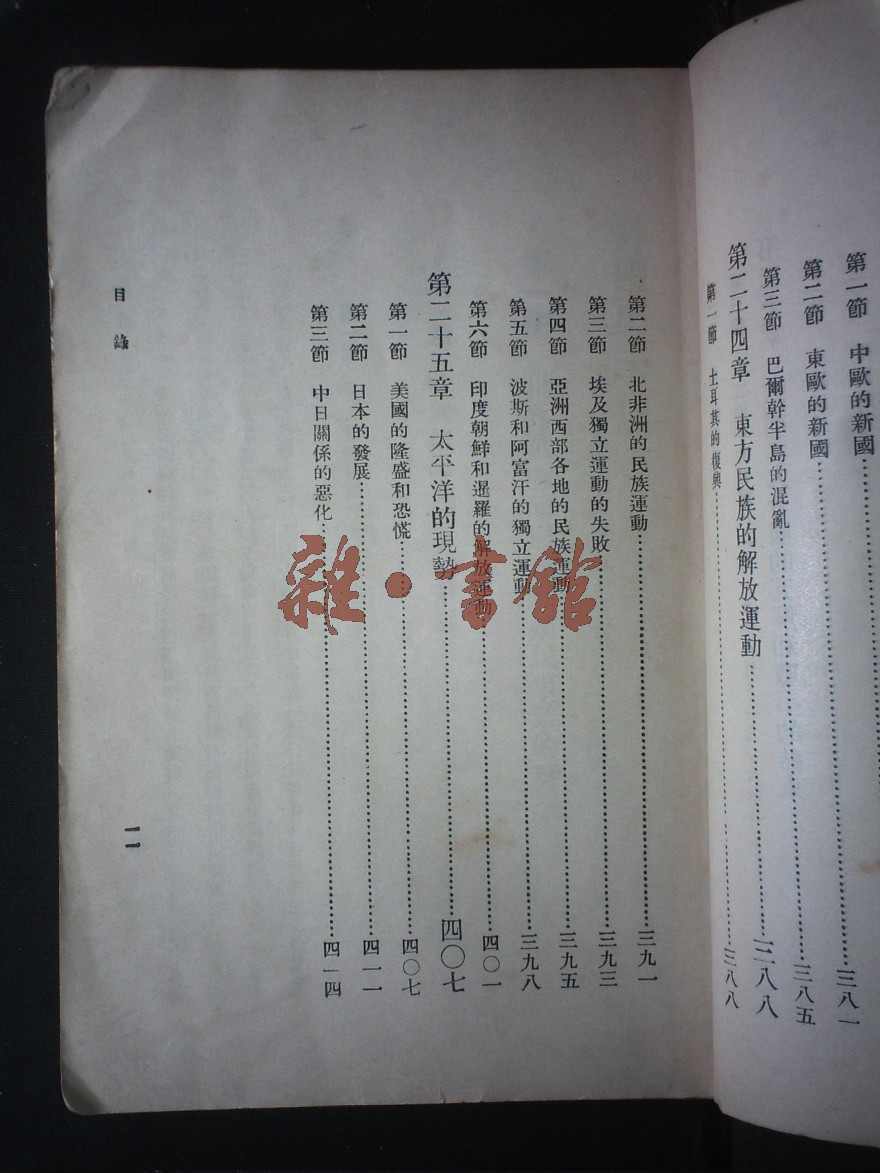 第一節　中歐的新國……三八一
第二節　東歐的新國……三八五
第三節　巴爾幹半島的混亂
第二十四章　東方民族的解放運動……三八八
第一節　土耳其的復興……三八八
第二節　北非洲的民族運動……三九一
第三節　埃及獨立運動的失敗……三九三
第四節　亞洲西部各地的民族運動……三九五
第五節　波斯和阿富汗的獨立運動……三九八
第六節　印度朝鮮和暹羅的解放運動……四〇一
第二十五章　太平洋的現勢……四〇七
第一節　美國的隆盛和恐慌……四〇七
第二節　日本的發展……四一一
第三節　中日關係的惡化……四一四
目錄
一一
雜·書館